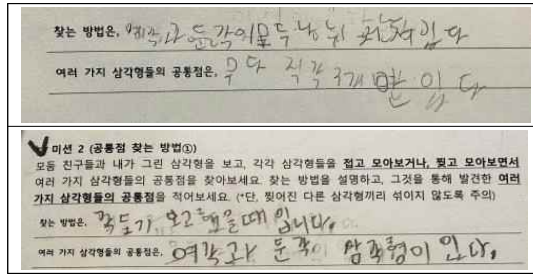 찾는 방법은, 예각과 둔각의 모두 나눠 입다
여러 가지 삼각형들의 공통점은, 무다 직각 3개 만 입다
미션 2 (공통점 찾는 방법①)
모둠 친구들과 내가 그린 삼각형을 보고, 각각 삼각형들을 접고 모아보거나, 찢고 모아보면서
여러 가지 삼각형들의 공통점을 찾아보세요. 찾는 방법을 설명하고, 그것을 통해 발견한 여러
가지 삼각형들의 공통점을 적어보세요. (*단, 찢어진 다른 삼각형끼리 섞이지 않도록 주의)
찾는 방법은, 각도가 모을때 입니다.
여러 가지 삼각형들의 공통점은, 여각과 둔각이 삼각형이 입다.